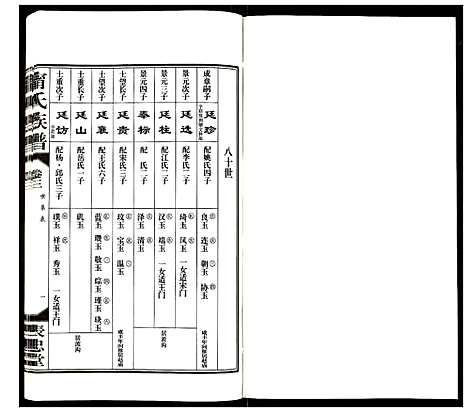 八十世
成章嗣子
廷珍
配姚氏四子
良玉 连玉 朝玉 协玉
景元次子
廷选
配李氏二子
琦玉 凤玉 一女适宋门
景元三子
廷柱
配江氏二子
汉玉 端玉 一女适王门
景元四子
奉标
配 氏二子
泽玉 清玉
居黄沟
士望长子
廷贵
配宋氏三子
玟玉 宝玉 温玉
士望次子
廷襄
配王氏六子
蓝玉 瓒玉 敬玉 琮玉 瑾玉 玦玉
士重长子
廷山
配岳氏一子
玑玉
士重次子
廷访
配杨·邱氏三子
璞玉 祥玉 秀玉 一女适王门
氏族谱
卷三
世系表
一
忠堂